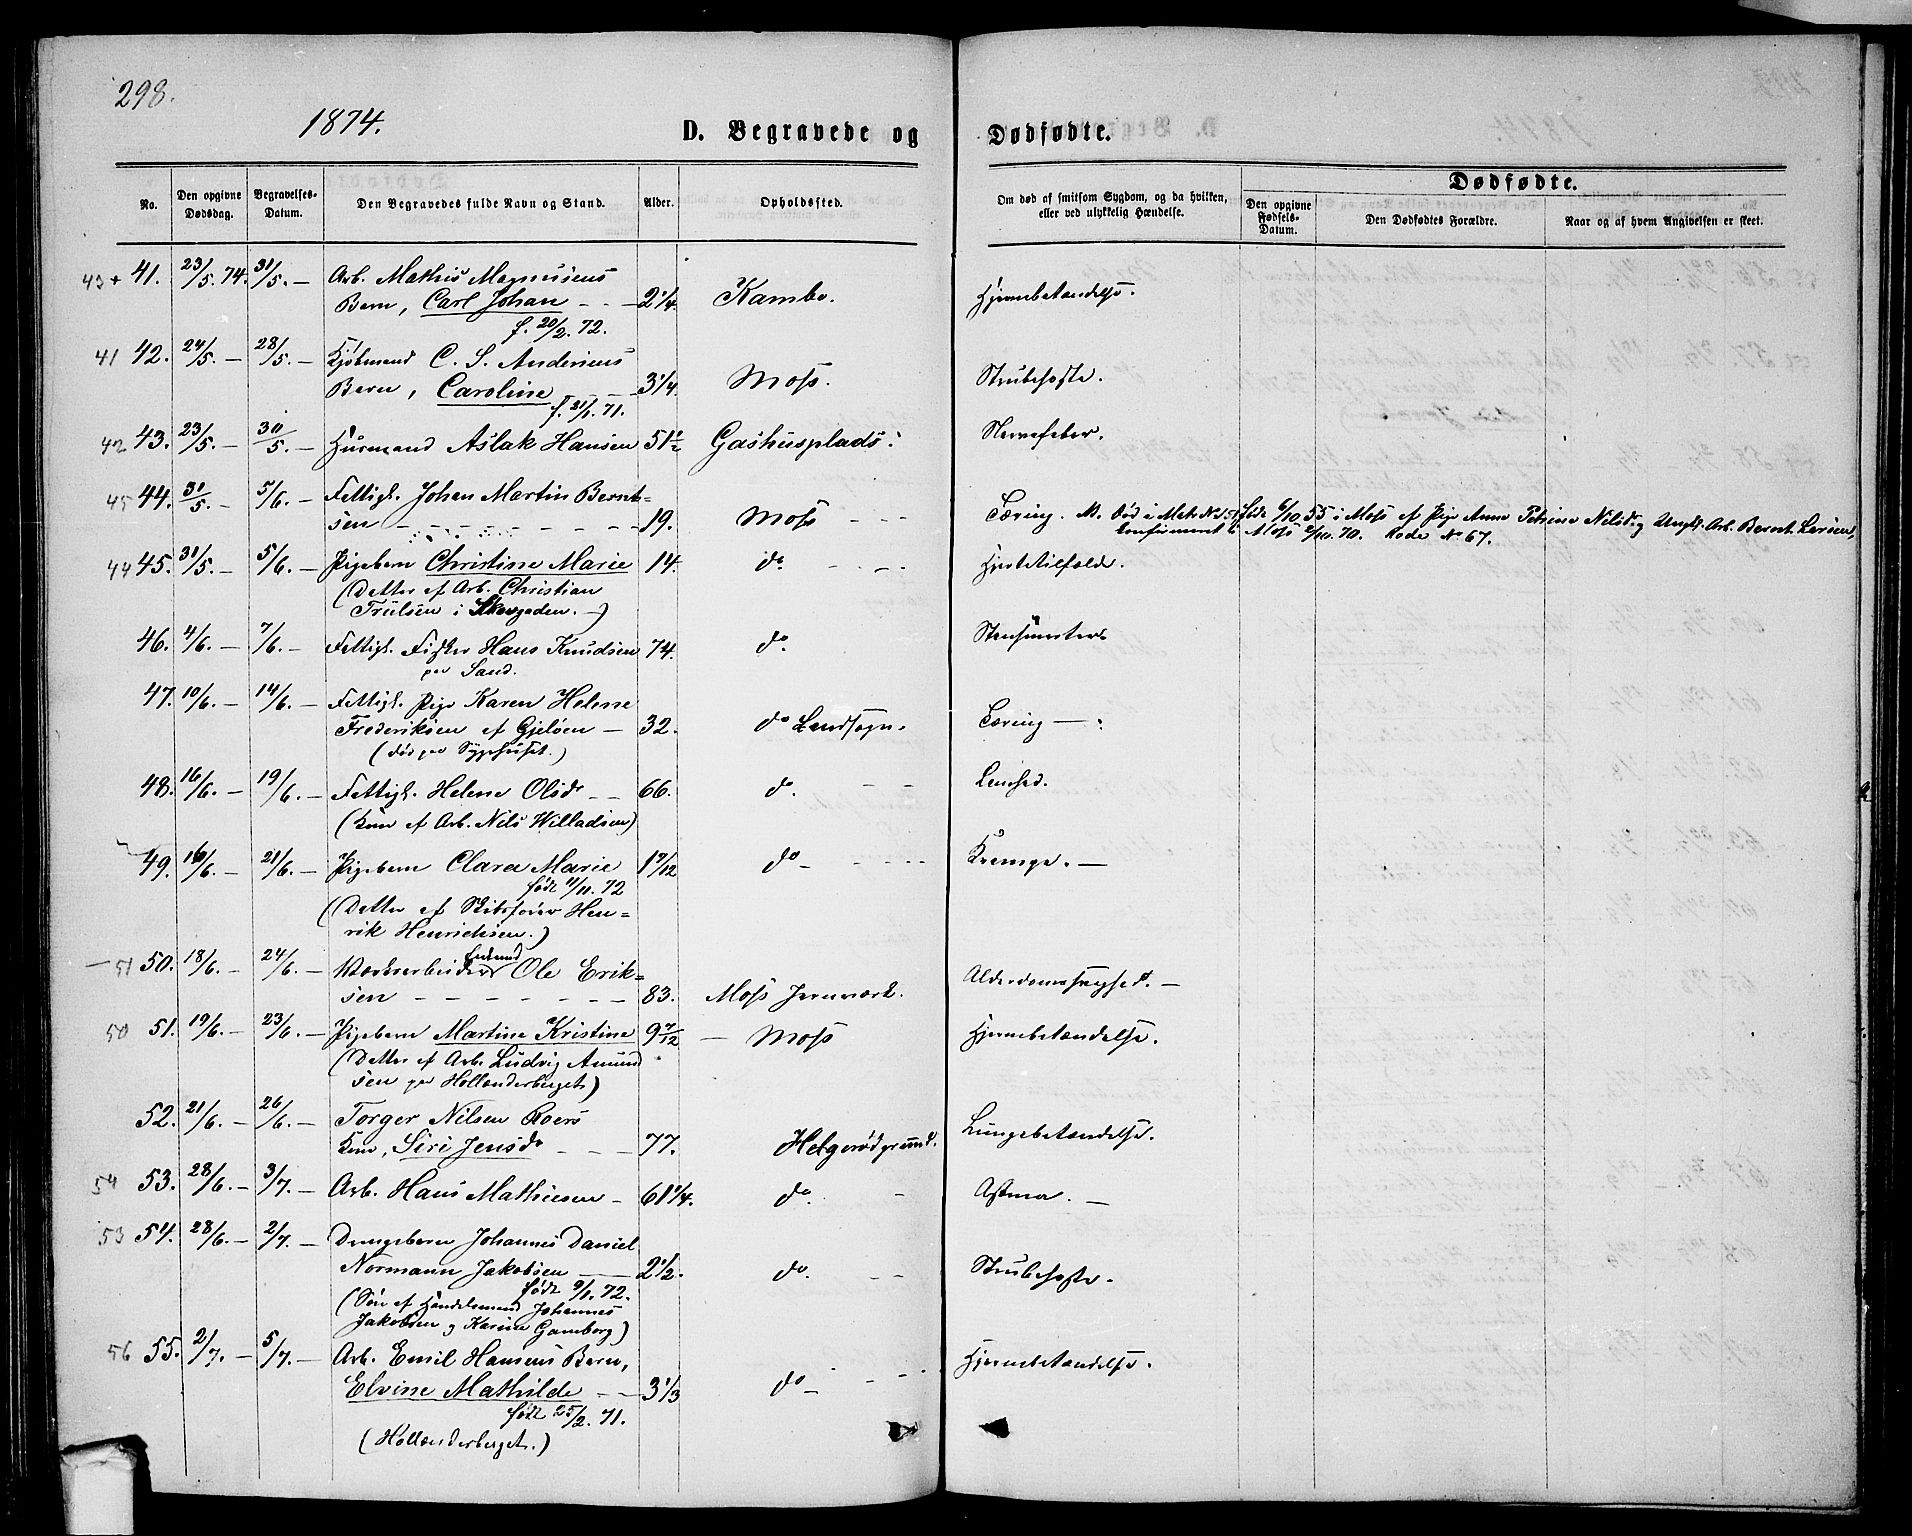 298.
1874.
D. Begravede og Dødfødte.
No. Den opgivne Dødsdag. Begravelses-Datum. Den Begravedes fulde Navn og Stand. Alder. Opholdssted. Om død af smitsom Sygdom, og da hvilken, eller ved ulykkelig Hændelse. Dødfødte. Den opgivne Fødsels-Datum. Den Dødfødtes Forældre. Naar og af hvem Angivelsen er skeet.
43 + 41. 23/5. 74. 31/5. — Arb. Mathis Magnusens
Barn, Carl Johan - - - 2 1/4. Kambo. Hjernebetændelse.
f. 20/2. 72.
41 42. 24/5 — 28/5. — Kjøbmand C. S. Andersens
Barn, Caroline 3 1/4. Moss. Strubehoste.
f. 31/1. 71.
42 43. 23/5 — 30/5. — Husmand Aslak Hansen 51 1/2 Gashusplads. Nervefeber.
45 44. 31/5. — 5/6. — Fattigl. Johan Martin Bernt-
sen - - - - - - - 19. Moss - - - Tæring. N. Død i Matr No 51 født 6/10 55 i Moss af Pige Anne Petrine Nilsdr og Ungk. Arb. Bernt Larsen,
konfirmeret i Moss 2/10. 70. Rode No 67.
44 45. 31/5. — 5/6. — Pigebarn Christine Marie 14. do. - - - Hjertetilfælde.
(Datter af Arb. Christian
Trulsen i Skovgaden. —)
46. 4/6. — 7/6. — Fattigl. Fisker Hans Knudsen 74. do.
paa Sand.
47. 10/6. — 14/6. — Fattigl. Pige Karen Helene
Frederiksen af Gjeløen — 32. do Landsogn. Tæring — .
(død paa Sygehuset.)
48. 16/6. — 19/6. — Fattigl. Helene Olsdr - - 66. do. - - Lamhed.
(Kone af Arb. Nils Willadsen)
49. 16/6. — 21/6. — Pigebarn Clara Marie 1 7/12 do — - - - Krampe. —
født 11/11. 72
(Datter af Skibsfører Hen-
rik Henrichsen.)
— 51 50. 18/6. — 24/6. — Værksarbeider Enkemd Ole Erik-
sen - - - - - - - 83. Moss Jernværk. Alderdomssvaghed. —
50 51. 19/6. — 23/6. — Pigebarn Martine Kristine 9 7/12 — Moss Hjernebetændelse.
(Datter af Arb. Ludvig Amund
sen paa Hollænderberget)
52. 21/6. — 26/6. — Torger Nilsen Roers
Kone, Siri Jensdr - - - 77. Helgerødgrund. Lungebetændelse.
54 53. 28/6. — 3/7. — Arb. Hans Mathiesen - 61 1/4. do. - Astma. —
53 54. 28/6. — 2/7. — Drengebarn Johannes Daniel
Normann Jakobsen — 2 1/2. do. - - Strubehoste.
født 9/1. 72.
(Søn af Handelsmand Johannes
Jakobsen og Karine Gamborg)
56 55. 2/7. — 5/7. — Arb. Emil Hansens Barn,
Elvine Mathilde - - 3 1/3 do — - - - Hjernebetændelse.
født 25/2. 71.
(Hollænderberget.)